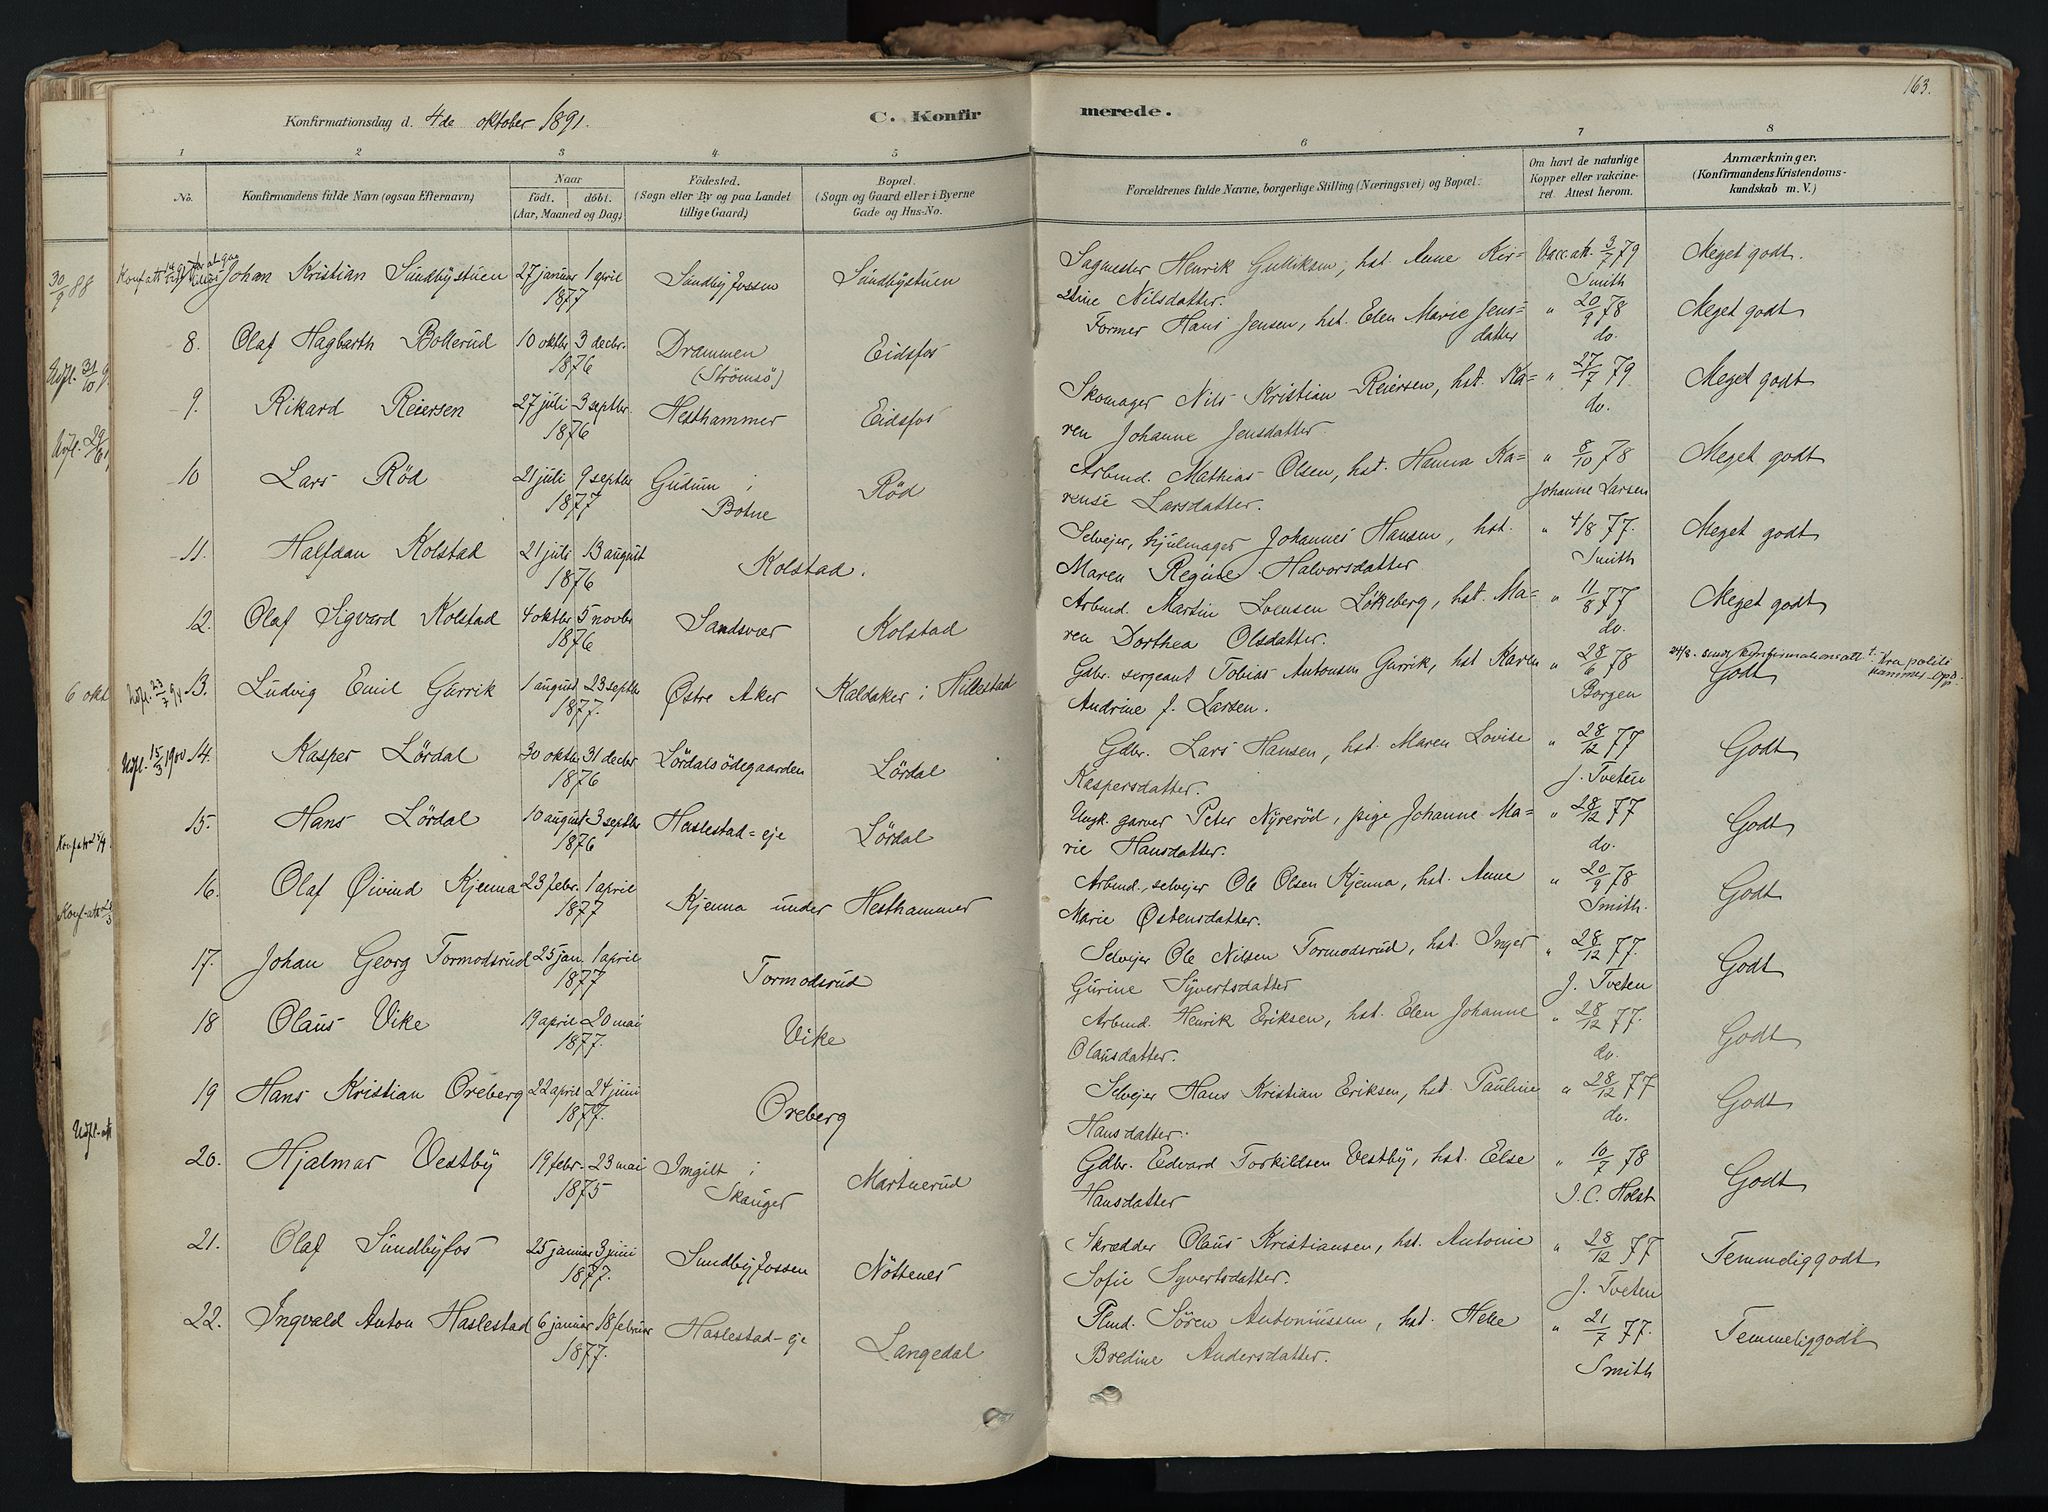 163.
Konfirmationsdag d. 4de oktober 1891.
C. Konfir
merede.
1 2 3 4. 5 6 7 8
No.
Konfirmandens fulde Navn (ogsaa Efternavn)
Naar
födt. döbt.
(Aar, Maaned og Dag)
Födested.
(Sogn eller By og paa Landet
tillige Gaard)
Bopæl.
(Sogn og Gaard eller i Byerne
Gade og Hus-No.
Forældrenes fulde Navne, borgerlige Stilling (Næringsvei) og Bopæl:
Om havt de naturlige
Kopper eller vaccine-
ret. Attest herom.
Anmærkninger.
(Konfirmandens Kristendoms-
kundskab m. V.)
30/9 88
Johan Kristian Sundbystuen 27 januar 1 april 1877 Sundbyfossen Sundbystuen
Sagmester Henrik Gulliksen, hst. Anne Kir-
stine Nilsdatter.
Vacc. att. 3/7 79
Smith
Meget godt.
8. Olaf Hagbarth Bollerud 10 oktbr 3 decbr. 1876 Drammen (Strömsö) Eidsfos
Former Hans Jensen, hst. Elen Marie Jens-
datter
" 20/9 78
do.
Meget godt
9. Rikard Reiersen 27 juli 3 septbr. 1876 Hesthammer Eidsfos
Skomager Nils Kristian Reiersen, hst. Ka-
ren Johanne Jensdatter.
" 27/7 79
do.
Meget godt
10 Lars Röd 21 juli 9 septbr 1877 Gudum i Botne Röd
Arbmd. Mathias Olsen, hst. Hanna Ka-
rense Larsdatter.
" 8/10 78
Johanne Larsen
Meget godt
11. Halfdan Kolstad 21 juli 13 august 1876 Kolstad.
Selvejer, hjulmager Johannes Hansen, hst.
Maren Regine Halvorsdatter
" 4/8 77.
Smith
Meget godt
12. Olaf Sigvard Kolstad 4 oktbr 5 novbr 1876 Sandsvær Kolstad
Arbmd. Martin Svensen Lökeberg, hst. Ma-
ren Dorthea Olsdatter.
" 11/8 77
do.
Meget godt
6 okt
Udfl. 23/7 94 13. Ludvig Emil Gurrik 1 august 23 septbr 1877. Østre Aker Kaldaker i Hillestad
Gdbr. sergeant Tobias Antonsen Gurrik, hst Karen
Andrine J. Larsen.
" 28/6 78
Borgen
Godt
Udfl. 15/3 1900 14. Kasper Lördal 30 oktbr 31 decbr 1876 Lördalsödegaarden Lördal
Gdbr. Lars Hansen, hst. Maren Lovise
Kaspersdatter.
" 28/12 77
J. Tveten
Godt
15. Hans Lördal 10 august 3 septbr 1876 Haslestad=eje Lördal
Ungk. garver Peter Nyrerød, pige Johanne Ma-
rie Hansdatter.
" 28/12 77
do.
Godt
16. Olaf Øivind Kjenna 23 febr. 1 april 1877 Kjenna under Hesthammer
Arbmd., selvejer Ole Olsen Kjenna, hst. Anne
Marie Østensdatter.
" 20/9 78
Smith.
Godt
17. Johan Georg Tormodsrud 25 jan. 1 april 1877 Tormodsrud
Selvejer Ole Nilsen Tormodsrud, hst. Inger
Gurine Syvertsdatter
" 28/12 77.
J. Tveten
Godt
18 Olaus Vike 19 april 20 mai 1877. Vike
Arbmd. Henrik Eriksen, hst. Elen Johanne
Olausdatter.
" 28/12 77.
do.
Godt
19 Hans Kristian Oreberg 22 april 24 juni 1877. Oreberg
Selvejer Hans Kristian Eriksen, hst. Pauline
Hansdatter.
" 28/12 77
do.
Godt
20. Hjalmar Vestby 19 febr. 23 mai 1875 Imgilt i Skauger Martnerud
Gdbr. Edvard Torkildsen Vestby, hst. Else
Hansdatter
" 16/7 78
J. C. Holst
Godt
21. Olaf Sundbyfos 25 januar 3 juni 1877. Sundbyfossen Nöttenes
Skrædder Olaus Kristiansen, hst. Antonie
Sofie Syvertsdatter.
" 28/12 77
J. Tveten
Temmeliggodt
22. Ingvald Anton Haslestad 6 januar 18 februar 1877. Haslestad-eje Langedal
Plmd. Sören Antoniussen, hst. Helle
Bredine Andersdatter.
" 21/7 77.
Smith
Temmeliggodt